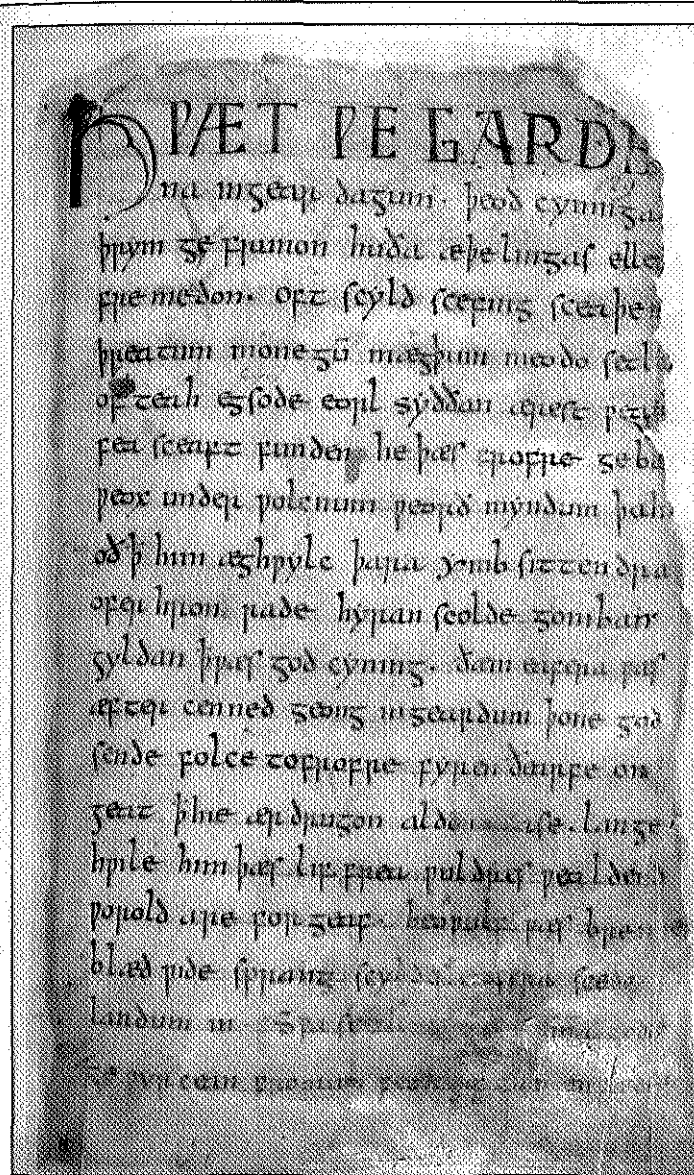 HǷÆT ǷE GARDE
na ingear dagum. þeod cyninga
þrym ge frunon huða æþelingas elle
fremedon. oft scyld scefing sceaþe
þreatum monegū mægþum meodo setla
of teah egsode eorl syððan ærest ƿearð
fea sceaft funden he þæs frofre geba
ƿeox under ƿolcnum ƿeorð myndum þah
oð ꝥ him æghƿylc þara ymb sittendra
ofer hron rade hyran scolde gomban
gyldan ꝥƿæs god cyning. ðam eafera ƿæs
æfter cenned geong ingeardum þone god
sende folce tofrofre fyren ðearfe on
geat ꝥhie ær drugon aldor ase. lange
hƿile him þæs lif frea ƿuldres ƿealdend
ƿorold are for geaf. beoƿulf ƿæs breme
blæd ƿide sprang scyldes eafera scede
landum in